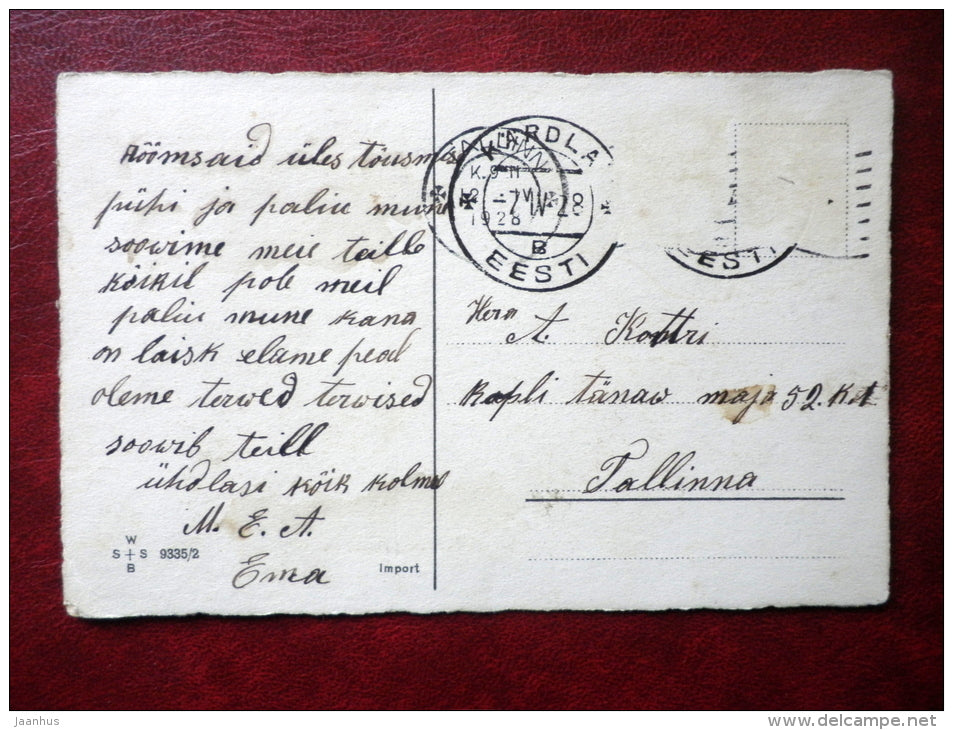 Rõõmsaid üles tõusmis
pühi ja palju mune
soowime meie teille
kõikil pole meil
paliu mune kana
on laisk elame peal
oleme terwed terwised
soowib teill
ühdlasi kõik kolme
M. E. A.
Ema
W
S + S 9335/2
B
Import
KÄRDLA
TALLINN
K. 9-11
-7 IV 28
1928
B
EESTI
EESTI
Herra
A. Kontri
Kopli tänaw maja 52. k.1
Tallinna
jaanhus
www.delcampe.net